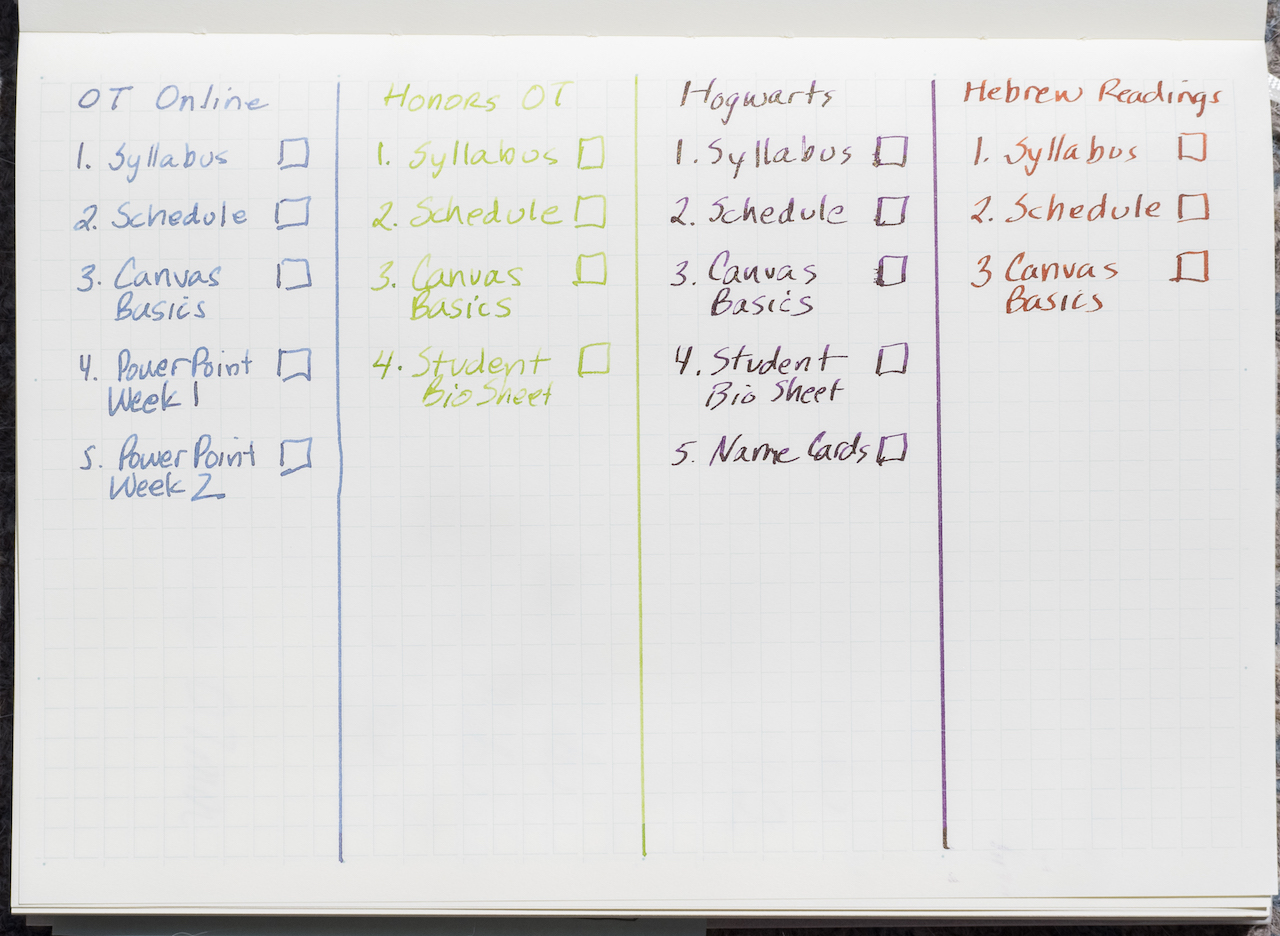 OT Online
1. Syllabus
2. Schedule
3. Canvas
Basics
4. PowerPoint
Week 1
5. PowerPoint
Week 2
Honors OT
1. Syllabus
2. Schedule
3. Canvas
Basics
4. Student
Bio Sheet
Hogwarts
1. Syllabus
2. Schedule
3. Canvas
Basics
4. Student
Bio Sheet
5. Name Cards
Hebrew Readings
1. Syllabus
2. Schedule
3 Canvas
Basics